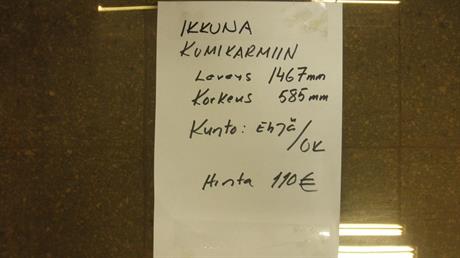 IKKUNA
KUMIKARMIIN
Leveys 1467mm
Korkeus 585mm
Kunto: Ehjä/OK
Hinta 110€